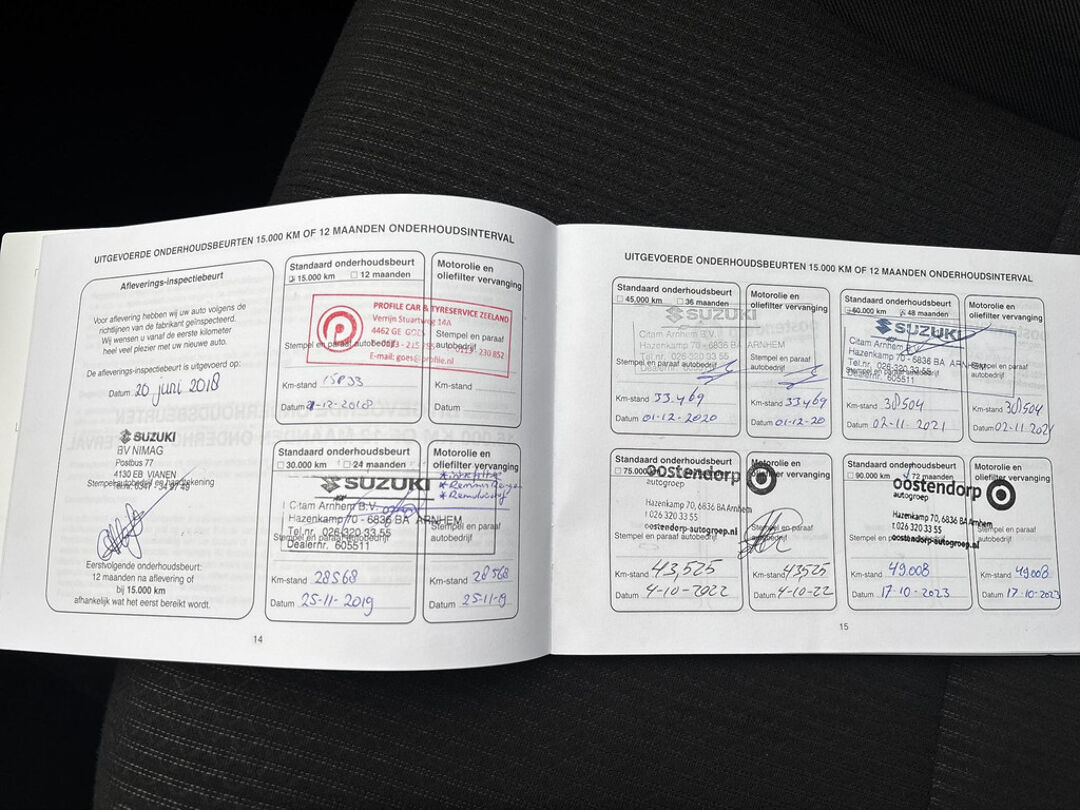 UITGEVOERDE ONDERHOUDSBEURTEN 15.000 KM OF 12 MAANDEN ONDERHOUDSINTERVAL
Afleverings-inspectiebeurt
Voor aflevering hebben wij uw auto volgens de
richtlijnen van de fabrikant geïnspecteerd.
Wij wensen u vanaf de eerste kilometer
heel veel plezier met uw nieuwe auto.
De afleverings-inspectiebeurt is uitgevoerd op:
Datum 20 juni 2018
SUZUKI
BV NIMAG
Postbus 77
4130 EB VIANEN
Stempel autobedrijf en handtekening
Eerstvolgende onderhoudsbeurt:
12 maanden na aflevering of
bij 15.000 km
afhankelijk wat het eerst bereikt wordt.
Standaard onderhoudsbeurt
15.000 km 12 maanden
PROFILE CAR & TYRESERVICE ZEELAND
Verrijn Stuartweg 14A
4462 GE GOES
Stempel en paraaf autobedrijf
E-mail: goes@profile.nl
Km-stand
Datum -12-2018
Motorolie en
oliefilter vervanging
Stempel en paraaf
autobedrijf
Km-stand
Datum
Standaard onderhoudsbeurt
30.000 km 24 maanden
SUZUKI
Citam Arnhem B.V.
Hazenkamp 70 - 6836 BA ARNHEM
Tel.nr. 026-320 33 55
Dealernr. 605511
Stempel en paraaf autobedrijf
Km-stand 28568
Datum 25-11-2019
Motorolie en
oliefilter vervanging
Stempel en paraaf
autobedrijf
Km-stand 28568
Datum 25-11-19
14
UITGEVOERDE ONDERHOUDSBEURTEN 15.000 KM OF 12 MAANDEN ONDERHOUDSINTERVAL
Standaard onderhoudsbeurt
45.000 km 36 maanden
SUZUKI
Citam Arnhem B.V.
Hazenkamp 70 - 6836 BA ARNHEM
Tel.nr. 026-320 33 55
Stempel en paraaf autobedrijf
Km-stand 33.469
Datum 01-12-2020
Motorolie en
oliefilter vervanging
Stempel en paraaf
autobedrijf
Km-stand 33469
Datum 01-12-20
Standaard onderhoudsbeurt
60.000 km 48 maanden
SUZUKI
Citam Arnhem B.V.
Hazenkamp 70 - 6836 BA ARNHEM
Tel.nr. 026-320 33 55
Stempel en paraaf autobedrijf
Dealernr. 605511
Km-stand 38504
Datum 02-11-2021
Motorolie en
oliefilter vervanging
Stempel en paraaf
autobedrijf
Km-stand 38504
Datum 02-11-2021
Standaard onderhoudsbeurt
75.000
oostendorp
autogroep
Hazenkamp 70, 6836 BA Arnhem
t 026 320 33 55
oostendorp-autogroep.nl
Stempel en paraaf autobedrijf
Km-stand 43,525
Datum 4-10-2022
Motorolie en
oliefilter vervanging
Stempel en paraaf
autobedrijf
Km-stand 43,525
Datum 4-10-22
Standaard onderhoudsbeurt
90.000 km 72 maanden
oostendorp
autogroep
Hazenkamp 70, 6836 BA Arnhem
t 026 320 33 55
oostendorp-autogroep.nl
Stempel en paraaf autobedrijf
Km-stand 49.008
Datum 17-10-2023
Motorolie en
oliefilter vervanging
Stempel en paraaf
autobedrijf
Km-stand 49.008
Datum 17-10-2023
15